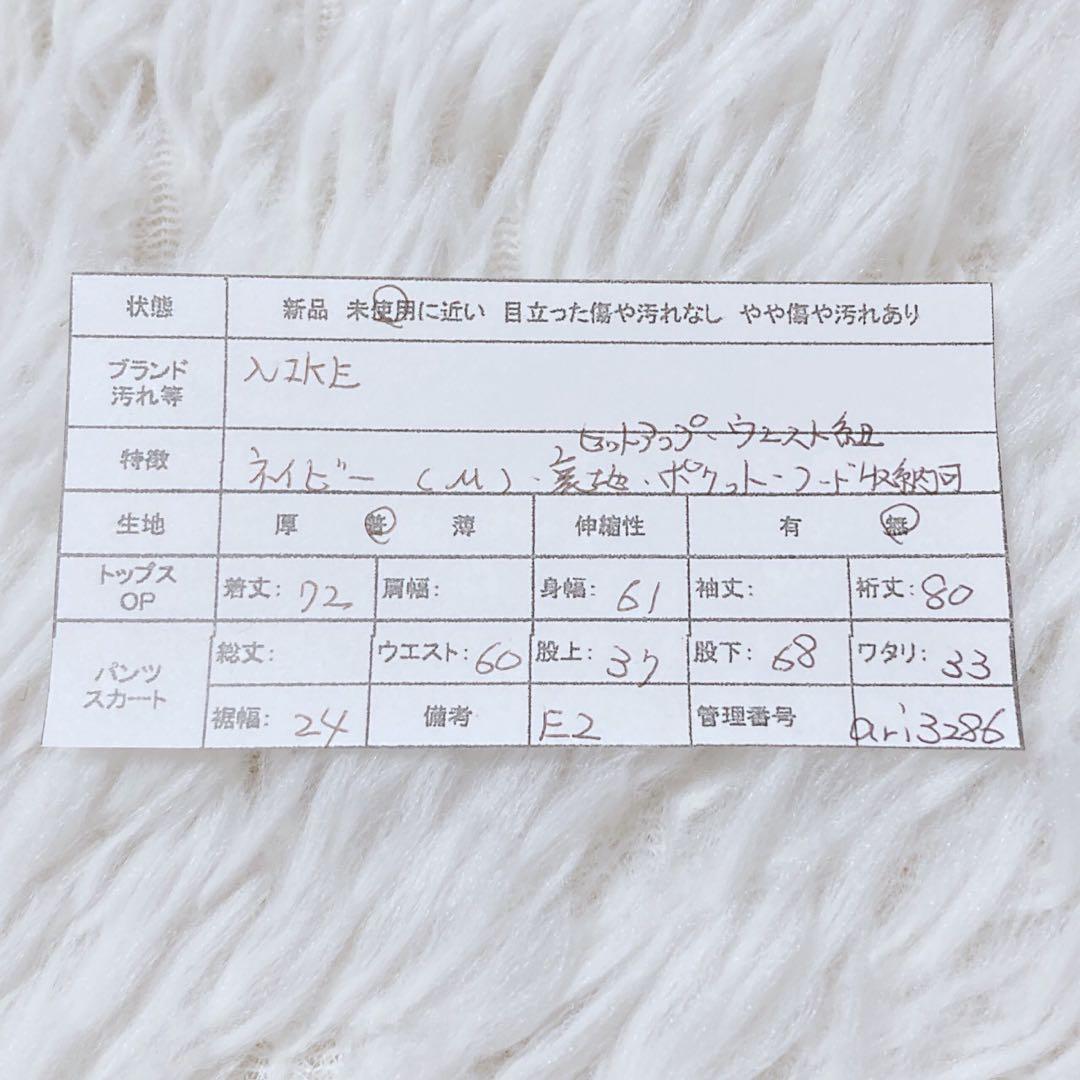 状態 新品 未使用に近い 目立った傷や汚れなし やや傷や汚れあり
ブランド NIKE
汚れ等
セットアップ・ウエスト紐
特徴 ネイビー (M)・裏地・ポケット・フード収納可
生地 厚 普 薄 伸縮性 有 無
トップス OP 着丈: 72 肩幅: 身幅: 61 袖丈: 裄丈: 80
パンツ スカート 総丈: ウエスト: 60 股上: 37 股下: 68 ワタリ: 33
裾幅: 24 備考 E2 管理番号 ari3286